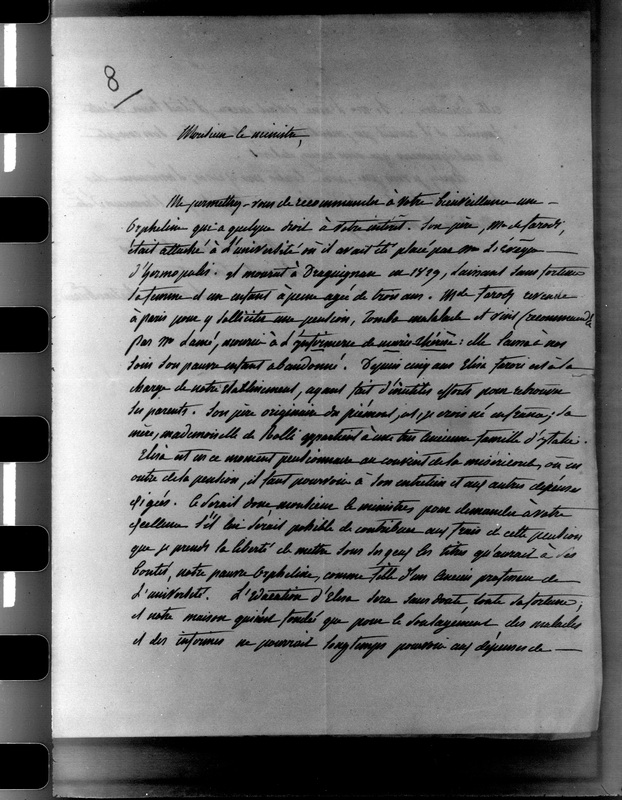 8
Monsieur le ministre,
Me permettez-vous de recommander à votre bienveillance une
orpheline qui a quelque droit à votre intérêt. Son père, Mr de Farodi,
était attaché à l'université où il avait été placé par Mr
d'hermopolis. il mourut à Draguignan en 1829, laissant sans fortune
sa femme et un enfant à peine agée de trois ans. Mde Farody revenue
à paris pour y solliciter une pension, tomba malade et vint (recommandée
par Mr Lamé, mourir à l'infirmerie de marie-thérèse: elle laissa à nos
soins son pauvre enfant abandonné. Depuis cinq ans Elisa Farodi est à la
charge de notre établissement, ayant fait d'inutiles efforts pour retrouver
ses parents. Son père originaire du piémont, est, je crois né en france; sa
mère, mademoiselle de Balli appartient à une très ancienne famille d'italie.
Elisa est en ce moment pensionnaire au couvent de la miséricorde, où en
outre de la pension, il faut pourvoir à son entretien et aux autres dépenses
exigées. Ce serait donc monsieur le ministre pour demander à votre
excellence s'il lui serait possible de contribuer aux frais de cette pension
que je prends la liberté de mettre sous ses yeux les titres qu'aurait à ses
bontés, notre pauvre orpheline, comme fille d'un ancien professeur de
l'université. L'éducation d'Elisa sera sans doute, toute sa fortune;
et notre maison qui n'est fondé que pour le soulagement des malades
et des infirmes ne pourrait longtemps pourvoir aux dépenses de